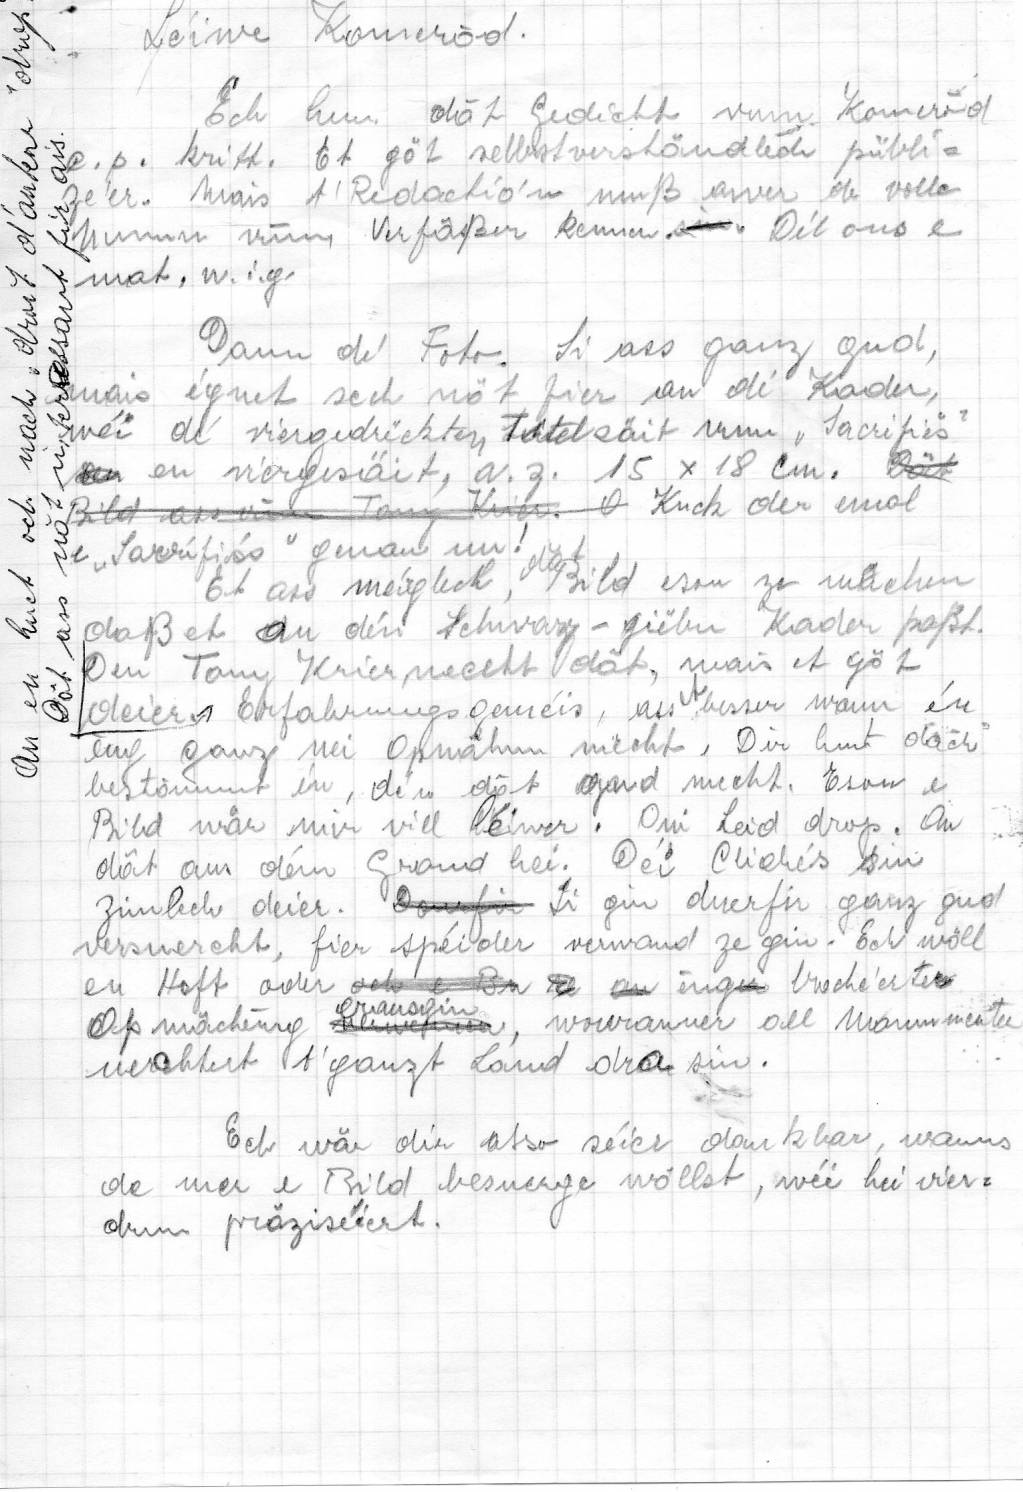 Léiwe Komerōd.
Ech hun dāt Gedicht vum Komerōd
e.p. kritt. Et göt selbstverständlech publi=
zéier. Mais t'Redactio'n muß awer de volle
Numm vum Verfāßer kennen. Dél ons e
mat, w.i.g.
Dann dé Foto. Si ass ganz gud,
mais égnet sech nöt fier an dé Kader,
wéi dé viergedréckten Titelsäit vum „Sacrifiés"
en viergesäit, d.z. 15 x 18 cm. Dāt
Bild ass vum Tony Krier. Kuck der emol
e „Sacrifiés" genau un!
Et ass méiglech, dāt Bild esou ze māchen
daß et an déi Schwarz-giëlen Kader paßt.
Den Tony Krier mecht dāt, mais et göt
deier. Erfahrungsgeméis, ass et besser wann én
éng ganz nei Opnāhm mecht, Dir hut dach
bestömmt én, dén dāt gud mecht. Esou e
Bild wär mir vill léiwer. Om Leid drop. An
dāt aus dém Grond hei. Déi Clichés sin
zimlech deier. Dourfir Si gin duerfir ganz gud
verwuercht, fier spéider verwand ze gin. Ech wöll
en Heft oder och e an éng brochéierte
grausgin
Opmāchéng, wouranner all Monumenter
iwerhtert t'ganzt Land dra sin.
Ech wär dir also séier dankbar, wanns
de mer e Bild besuerge wöllst, wéi hei vier=
drun präziséiert.
An en kuct och nach „drost d'änken" drop.
Dāt ass nöt interessant fir ais.